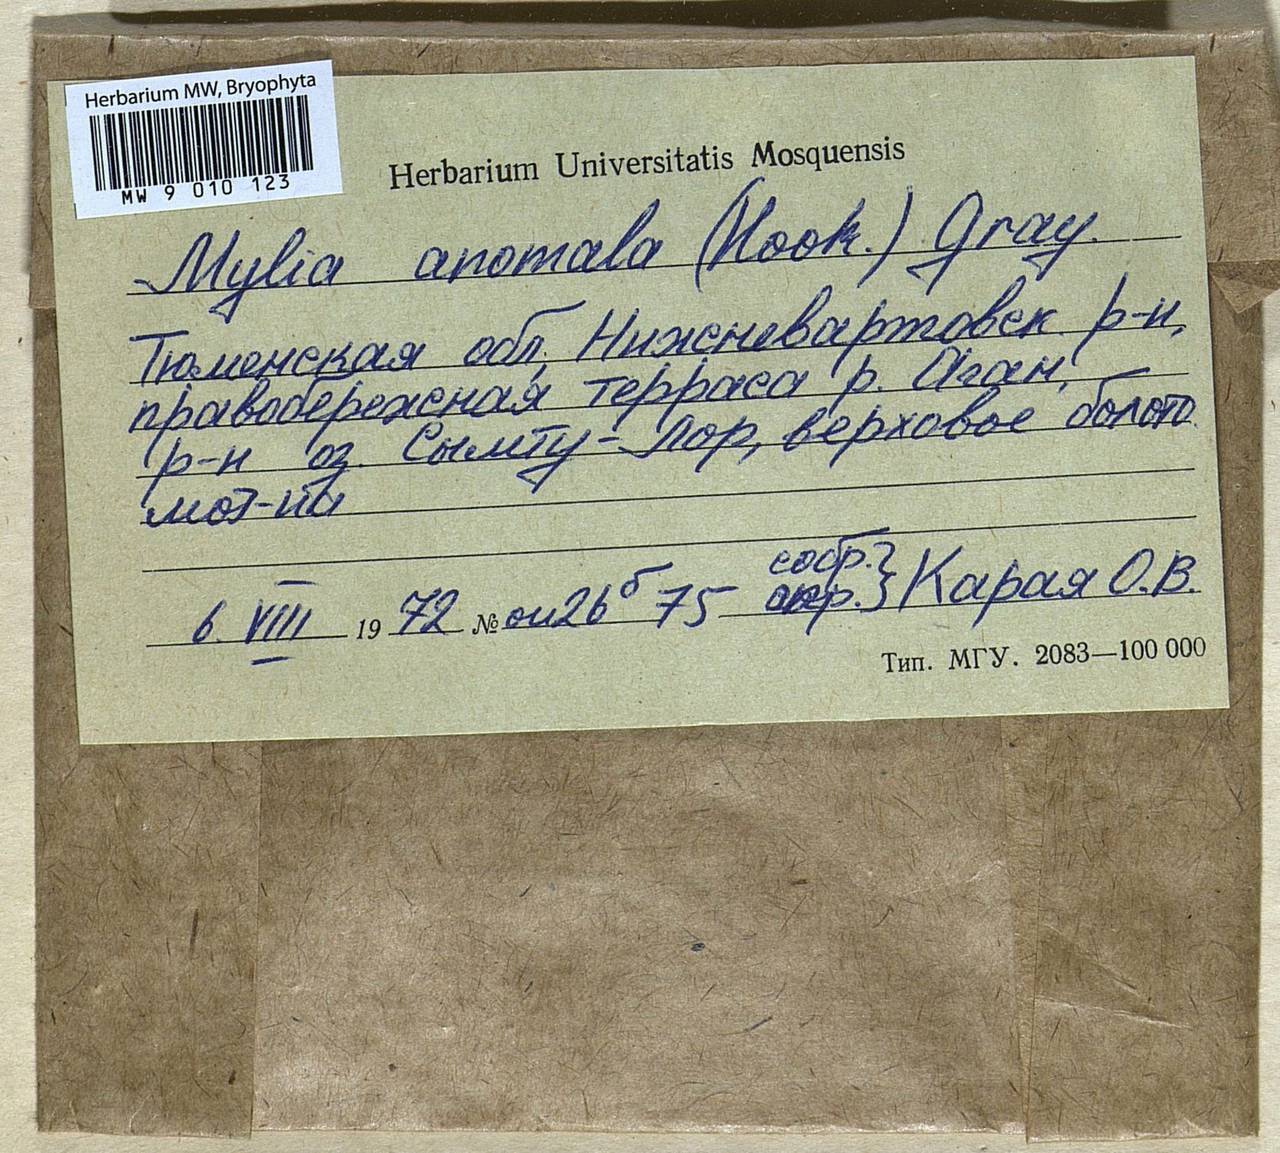 Herbarium MW, Bryophyta
MW 9 010 123
Herbarium Universitatis Mosquensis
Mylia anomala (Hook.) Gray.
Тюменская обл, Нижневартовск р-н,
правобережная терраса р. Аган,
р-н оз. Сымту-Лор, верховое болото
6. VIII 1972 № оп26б 75 собр. опр.} Карая О.В.
Тип. МГУ. 2083—100 000